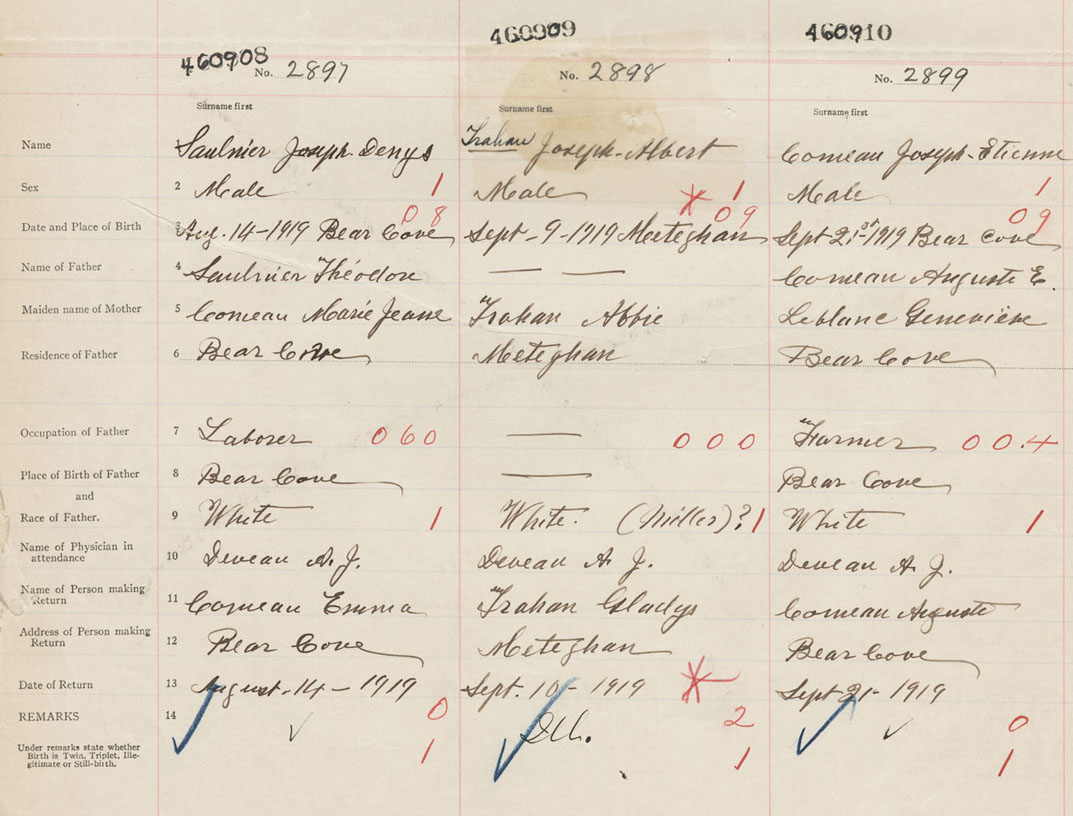 460908 460909 460910
No. 2897 No. 2898 No. 2899
Surname first Surname first Surname first
Name Saulnier Joseph-Denys Trahan Joseph-Albert Comeau Joseph-Etienne
Sex 2 Male 1 Male 1 Male 1
08 09 09
Date and Place of Birth 3 Aug. 14-1919 Bear Cove Sept-9-1919 Meteghan Sept 21st-1919 Bear Cove
Name of Father 4 Saulnier Théodore — — Comeau Auguste E.
Maiden name of Mother 5 Comeau Marie Jeanne Trahan Abbie Leblanc Genevieve
Residence of Father 6 Bear Cove Meteghan Bear Cove
Occupation of Father 7 Laborer 060 — 000 Farmer 00.4
Place of Birth of Father 8 Bear Cove — Bear Cove
and
Race of Father. 9 White 1 White. (Miller)? 1 White 1
Name of Physician in attendance 10 Deveau A. J. Deveau A J. Deveau A J.
Name of Person making Return 11 Comeau Emma Trahan Gladys Comeau Auguste
Address of Person making Return 12 Bear Cove Meteghan Bear Cove
Date of Return 13 August-14-1919 Sept-10-1919 Sept 21-1919
REMARKS 14 0 Ill. 2 0
Under remarks state whether Birth is Twin, Triplet, Ille-gitimate or Still-birth. 1 1 1